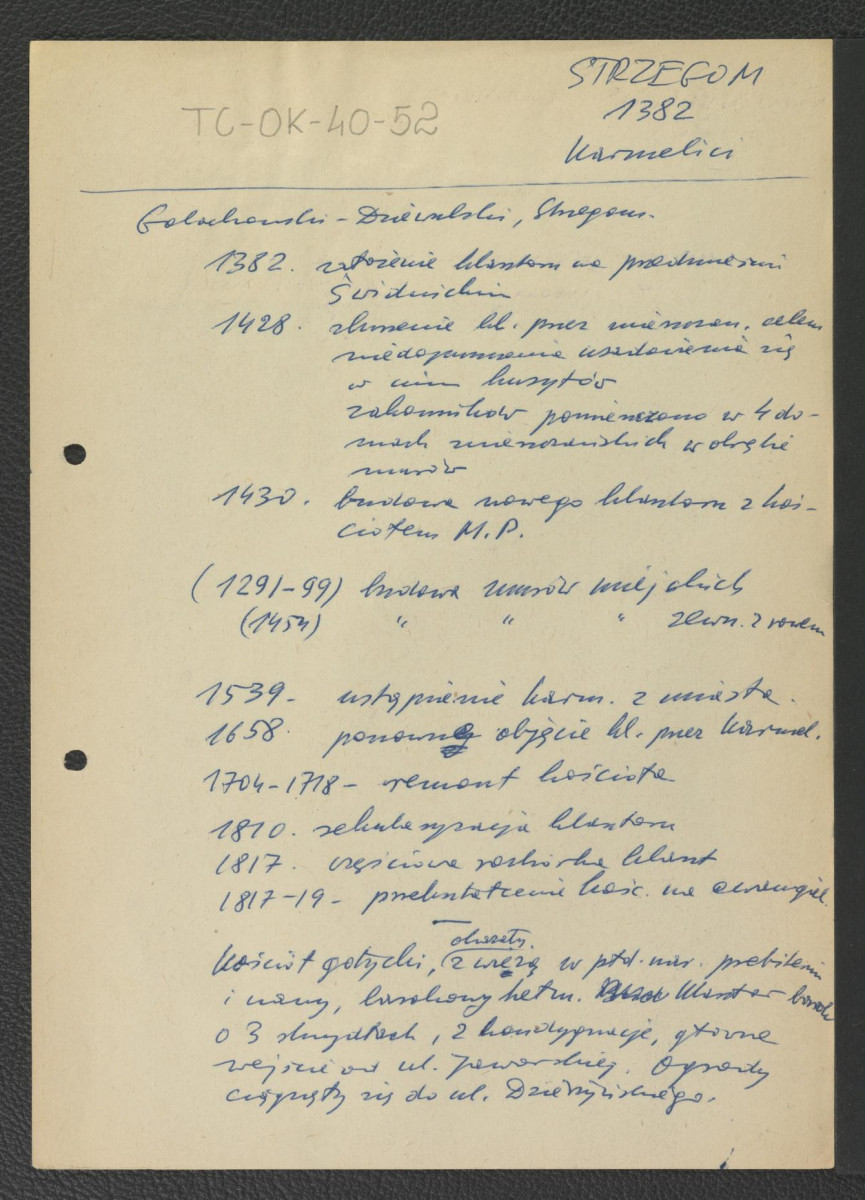 STRZEGOM
TC-OK-40-52
1382
Karmelici
Gołachowski - Dziewulski, Strzegom.
1382. założenie klasztoru na przedmieściu
Świdnickim
1428. zburzenie kl. przez mieszczan. celem
niedopuszczenia usadowienia się
w nim husytów
zakonników pomieszczono w 4 do-
mach mieszczańskich w obrębie
murów
1430. budowa nowego klasztoru z koś-
ciołem M.P.
(1291-99) budowa murów miejskich
(1454) " " " zewn. z rowem
1539 - ustąpienie karm. z miasta.
1658. ponowne objęcie kl. przez Karmel.
1704-1718 - remont kościoła
1810. sekularyzacja klasztoru
1817. częściowa rozbiórka klaszt
1817-19 - przekształcenie kośc. na ewangiel.
Kościół gotycki, z wieżą w płd. nar. prezbiterium
i nawy, barokowy hełm. Klasztor barok
o 3 skrzydłach, 2 kondygnacje, główne
wejście od ul. Jaworskiej. Ogrody
ciągnęły się do ul. Dzierżyńskiego.